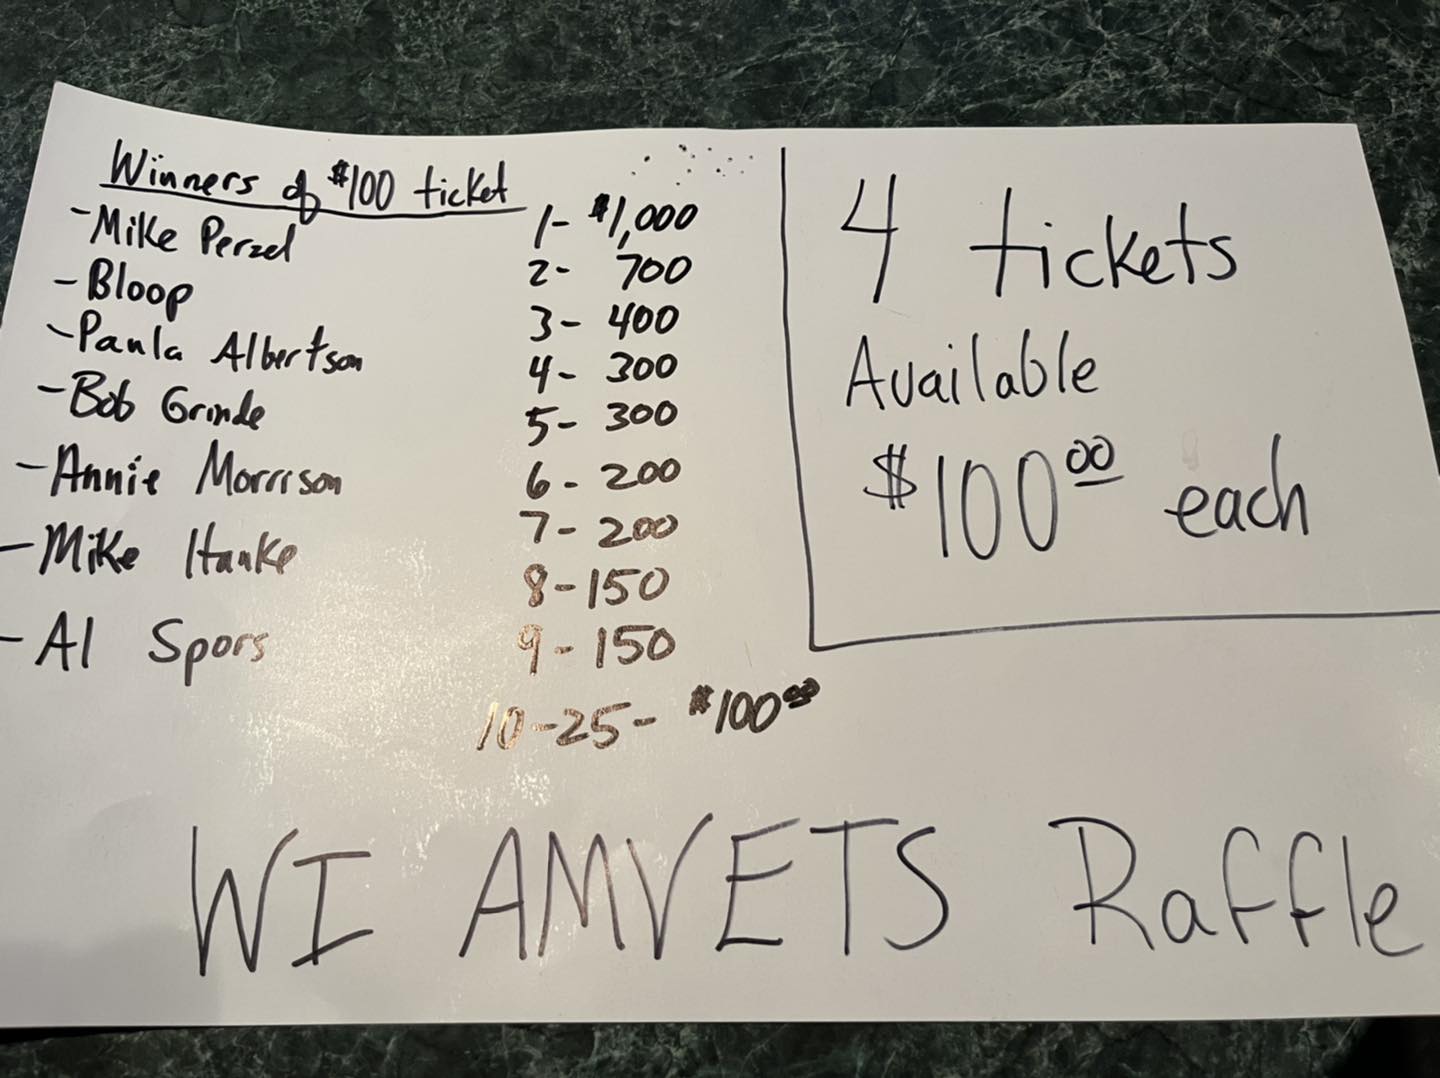 Winners of $100 ticket
- Mike Perzel
- Bloop
- Paula Albertson
- Bob Grinde
- Annie Morrison
- Mike Hanke
- Al Spors
1- $1,000
2- 700
3- 400
4- 300
5- 300
6- 200
7- 200
8- 150
9- 150
10-25- $100.00
4 tickets
Available
$100.00 each
WI AMVETS Raffle